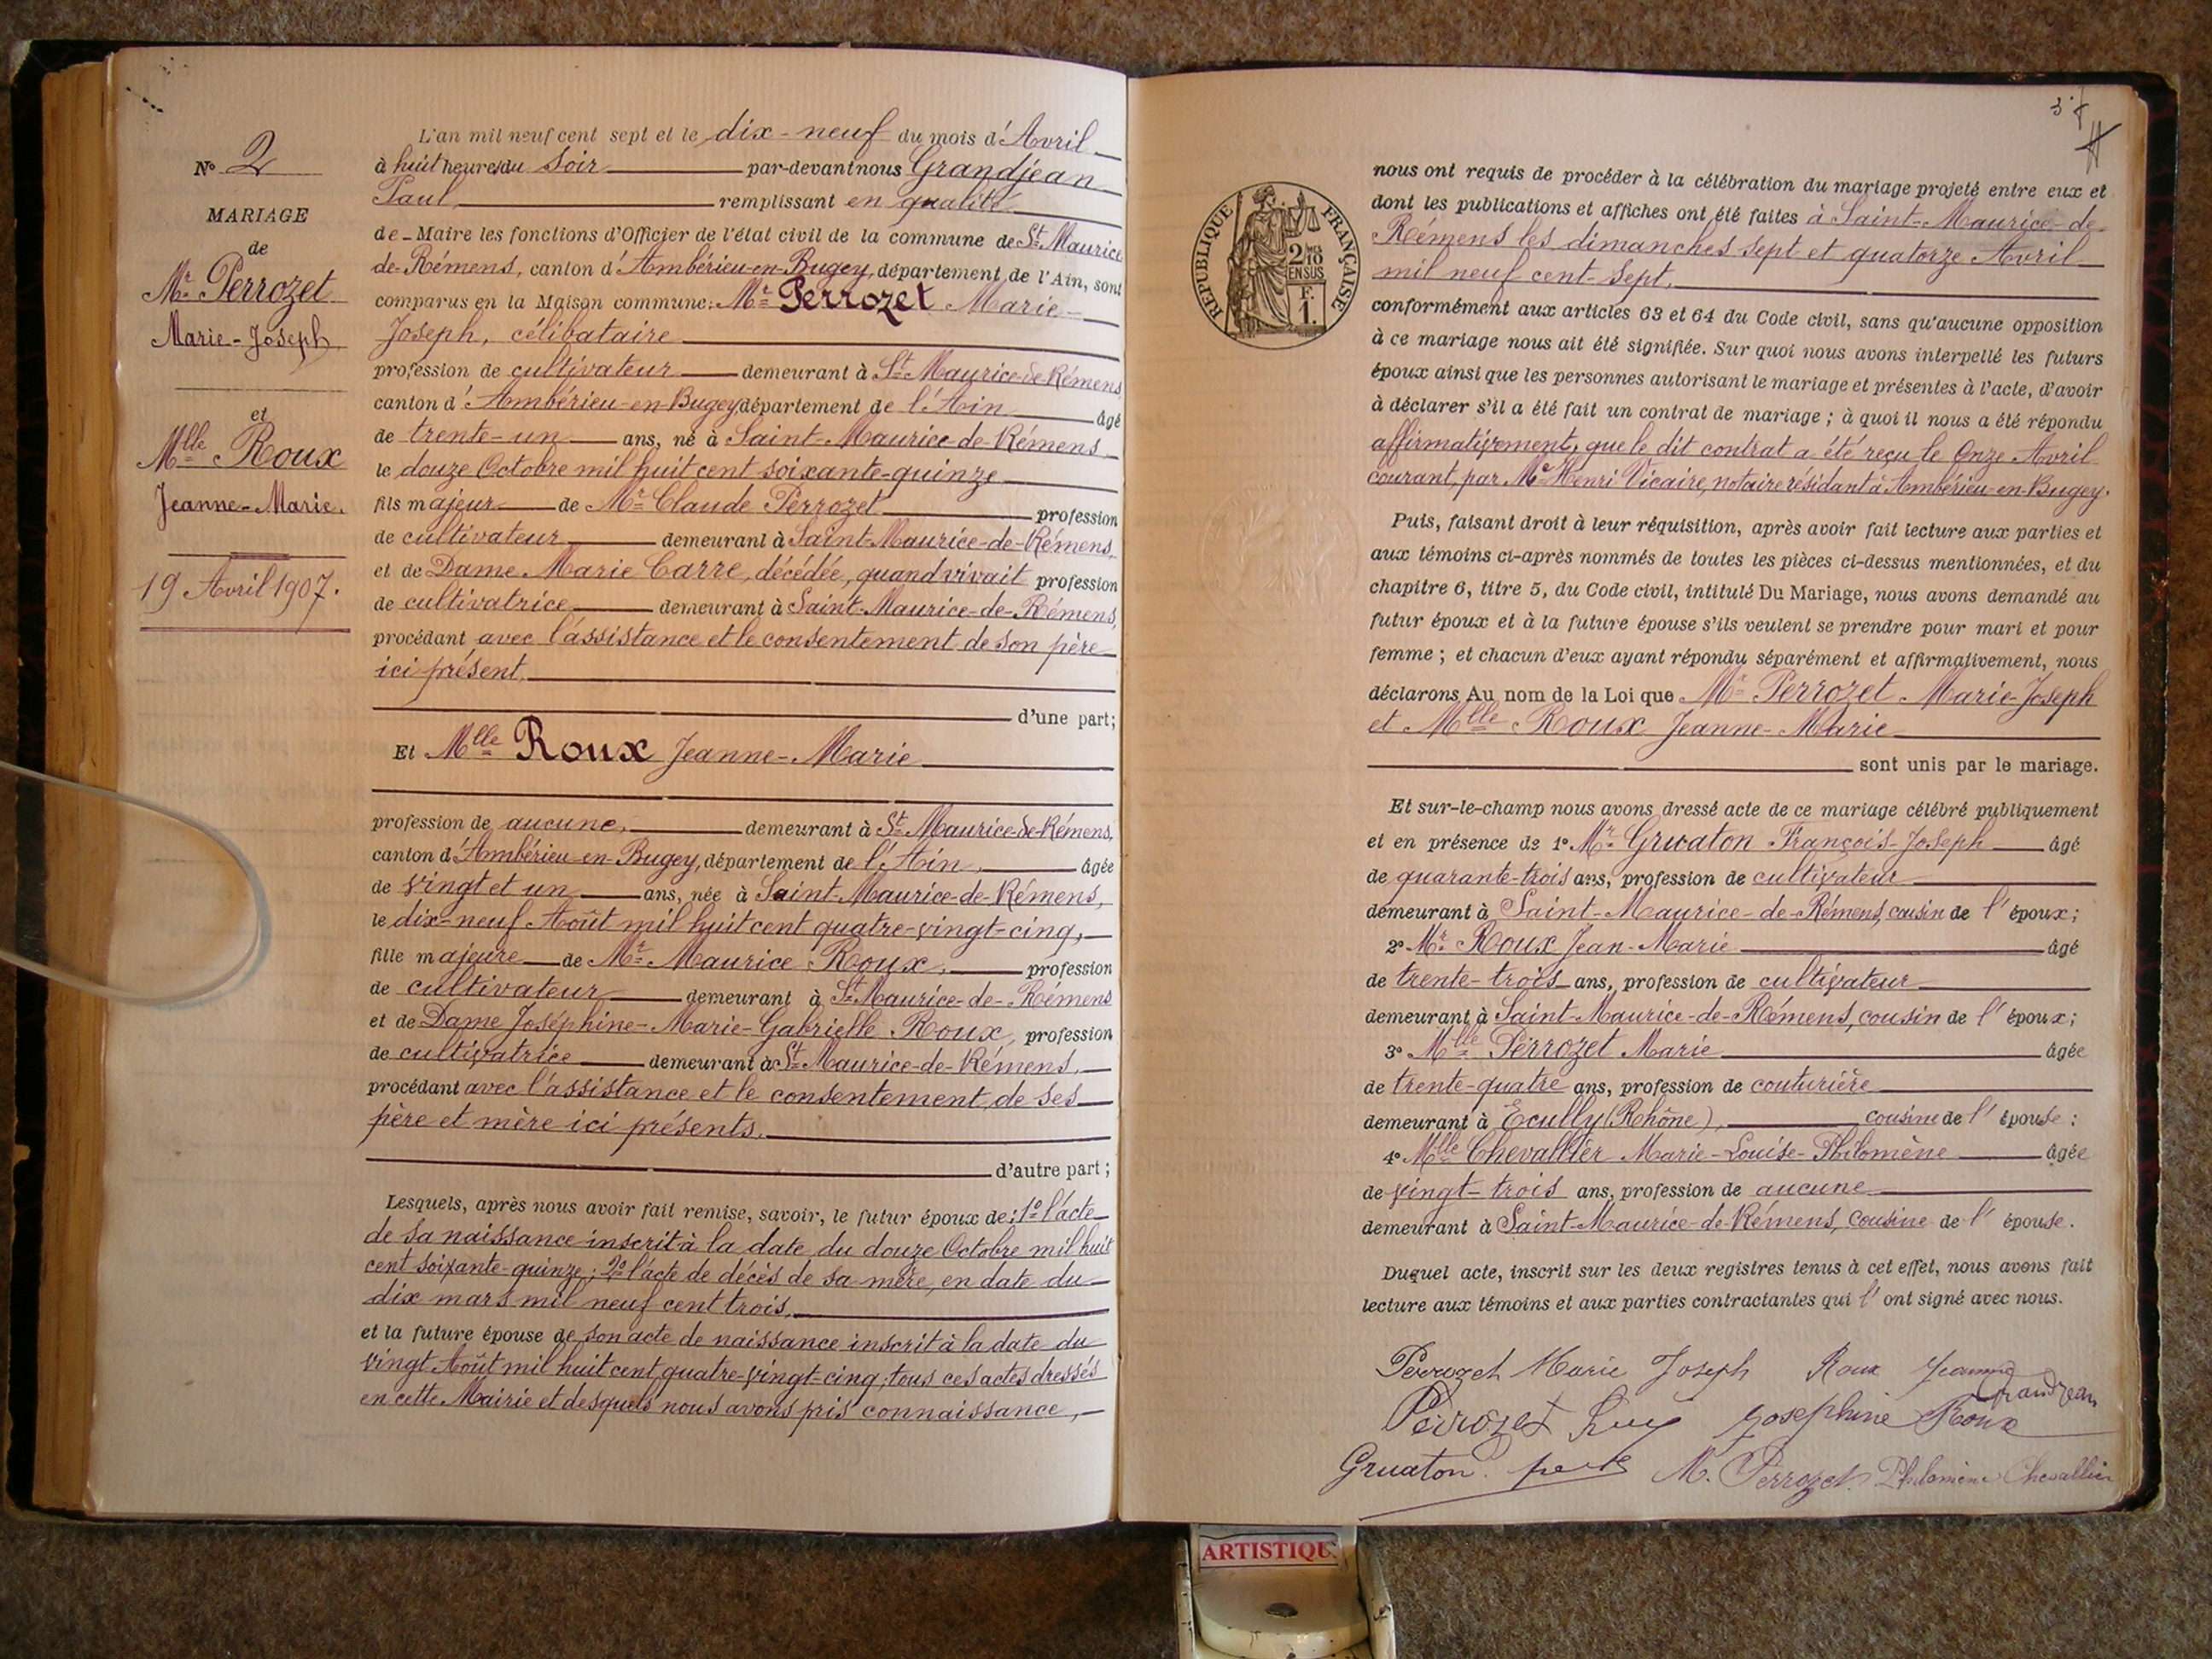 N° 2
MARIAGE
de
Mr Perrozet
Marie-Joseph
et
Mlle Roux
Jeanne-Marie.
19 Avril 1907.
L'an mil neuf cent sept et le dix-neuf du mois d'Avril
à huit heures du Soir par-devant nous Grandjean
Paul remplissant en qualité
de Maire les fonctions d'Officier de l'état civil de la commune de St Maurice
de-Rémens, canton d'Ambérieu-en-Bugey, département de l'Ain, sont
comparus en la Maison commune: Mr Perrozet Marie-
Joseph, célibataire
profession de cultivateur demeurant à St Maurice-de-Rémens
canton d'Ambérieu-en-Bugey département de l'Ain âgé
de trente-un ans, né à Saint-Maurice-de-Rémens
le douze Octobre mil huit cent soixante-quinze
fils majeur de Mr Claude Perrozet profession
de cultivateur demeurant à Saint-Maurice-de-Rémens,
et de Dame Marie Carre, décédée, quand vivait profession
de cultivatrice demeurant à Saint-Maurice-de-Rémens,
procédant avec l'assistance et le consentement de son père
ici présent.
d'une part;
Et Mlle Roux Jeanne-Marie
profession de aucune, demeurant à St Maurice-de-Rémens,
canton d'Ambérieu-en-Bugey, département de l'Ain, âgée
de vingt et un ans, née à Saint-Maurice-de-Rémens,
le dix-neuf Août mil huit cent quatre-vingt-cinq,
fille majeure de Mr Maurice Roux, profession
de cultivateur demeurant à St Maurice-de-Rémens
et de Dame Joséphine-Marie-Gabrielle Roux, profession
de cultivatrice demeurant à St Maurice-de-Rémens,
procédant avec l'assistance et le consentement de ses
père et mère ici présents.
d'autre part;
Lesquels, après nous avoir fait remise, savoir, le futur époux de: 1° l'acte
de sa naissance inscrit à la date du douze Octobre mil huit
cent soixante-quinze; 2° l'acte de décès de sa mère, en date du
dix mars mil neuf cent trois,
et la future épouse de son acte de naissance inscrit à la date du
vingt Août mil huit cent quatre-vingt-cinq; tous ces actes dressés
en cette Mairie et desquels nous avons pris connaissance,
RÉPUBLIQUE FRANÇAISE
2/10
EN SUS
F.
1.
nous ont requis de procéder à la célébration du mariage projeté entre eux et
dont les publications et affiches ont été faites à Saint-Maurice-de-
Rémens les dimanches sept et quatorze Avril
mil neuf cent-sept.
conformément aux articles 63 et 64 du Code civil, sans qu'aucune opposition
à ce mariage nous ait été signifiée. Sur quoi nous avons interpellé les futurs
époux ainsi que les personnes autorisant le mariage et présentes à l'acte, d'avoir
à déclarer s'il a été fait un contrat de mariage; à quoi il nous a été répondu
affirmativement, que le dit contrat a été reçu le Onze Avril
courant, par Me Henri Vicaire, notaire résidant à Ambérieu-en-Bugey.
Puis, faisant droit à leur réquisition, après avoir fait lecture aux parties et
aux témoins ci-après nommés de toutes les pièces ci-dessus mentionnées, et du
chapitre 6, titre 5, du Code civil, intitulé Du Mariage, nous avons demandé au
futur époux et à la future épouse s'ils veulent se prendre pour mari et pour
femme; et chacun d'eux ayant répondu séparément et affirmativement, nous
déclarons Au nom de la Loi que Mr Perrozet Marie-Joseph
et Mlle Roux Jeanne-Marie
sont unis par le mariage.
Et sur-le-champ nous avons dressé acte de ce mariage célébré publiquement
et en présence de 1° Mr Gruaton François-Joseph âgé
de quarante-trois ans, profession de cultivateur
demeurant à Saint-Maurice-de-Rémens, cousin de l'époux;
2° Mr Roux Jean-Marie âgé
de trente-trois ans, profession de cultivateur
demeurant à Saint-Maurice-de-Rémens, cousin de l'époux;
3° Mlle Perrozet Marie âgée
de trente-quatre ans, profession de couturière
demeurant à Ecully (Rhône), cousine de l'épouse:
4° Mlle Chevallier Marie-Louise-Philomène âgée
de vingt-trois ans, profession de aucune
demeurant à Saint-Maurice-de-Rémens, cousine de l'épouse.
Duquel acte, inscrit sur les deux registres tenus à cet effet, nous avons fait
lecture aux témoins et aux parties contractantes qui l'ont signé avec nous.
Perrozet Marie Joseph Roux Jeanne
Grandjean
Perrozet Josephine Roux
Gruaton M. Perrozet Philomène Chevallier
ARTISTIQU